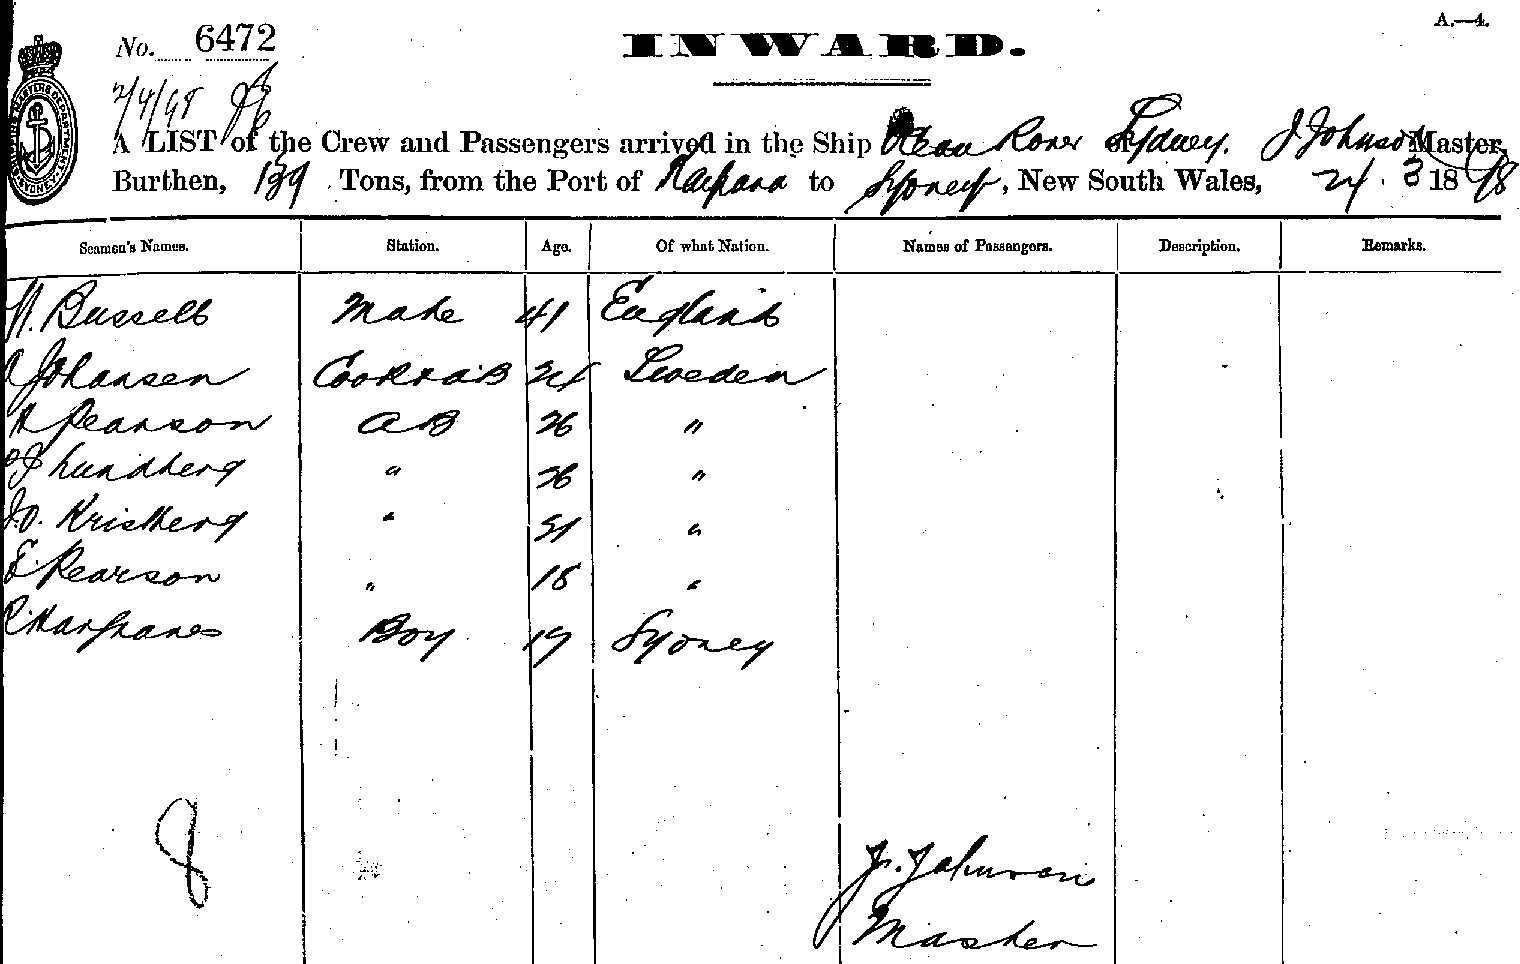 A.—4.
No. 6472
INWARD.
2/4/98
A LIST of the Crew and Passengers arrived in the Ship Ocean Rover of Sydney. J Johnson Master,
Burthen, 139 Tons, from the Port of Kaipara to Sydney, New South Wales, 24. 3 1898
Seamen's Names. Station. Age. Of what Nation. Names of Passengers. Description. Remarks.
Bussell Mate 41 England
Johansen Cook & AB 24 Sweden
Pearson AB 26 "
Lundberg " 26 "
J.O. Kristberg " "
E. Pearson " 18 "
Hargraves Boy Sydney
8
J. Johnson
Master